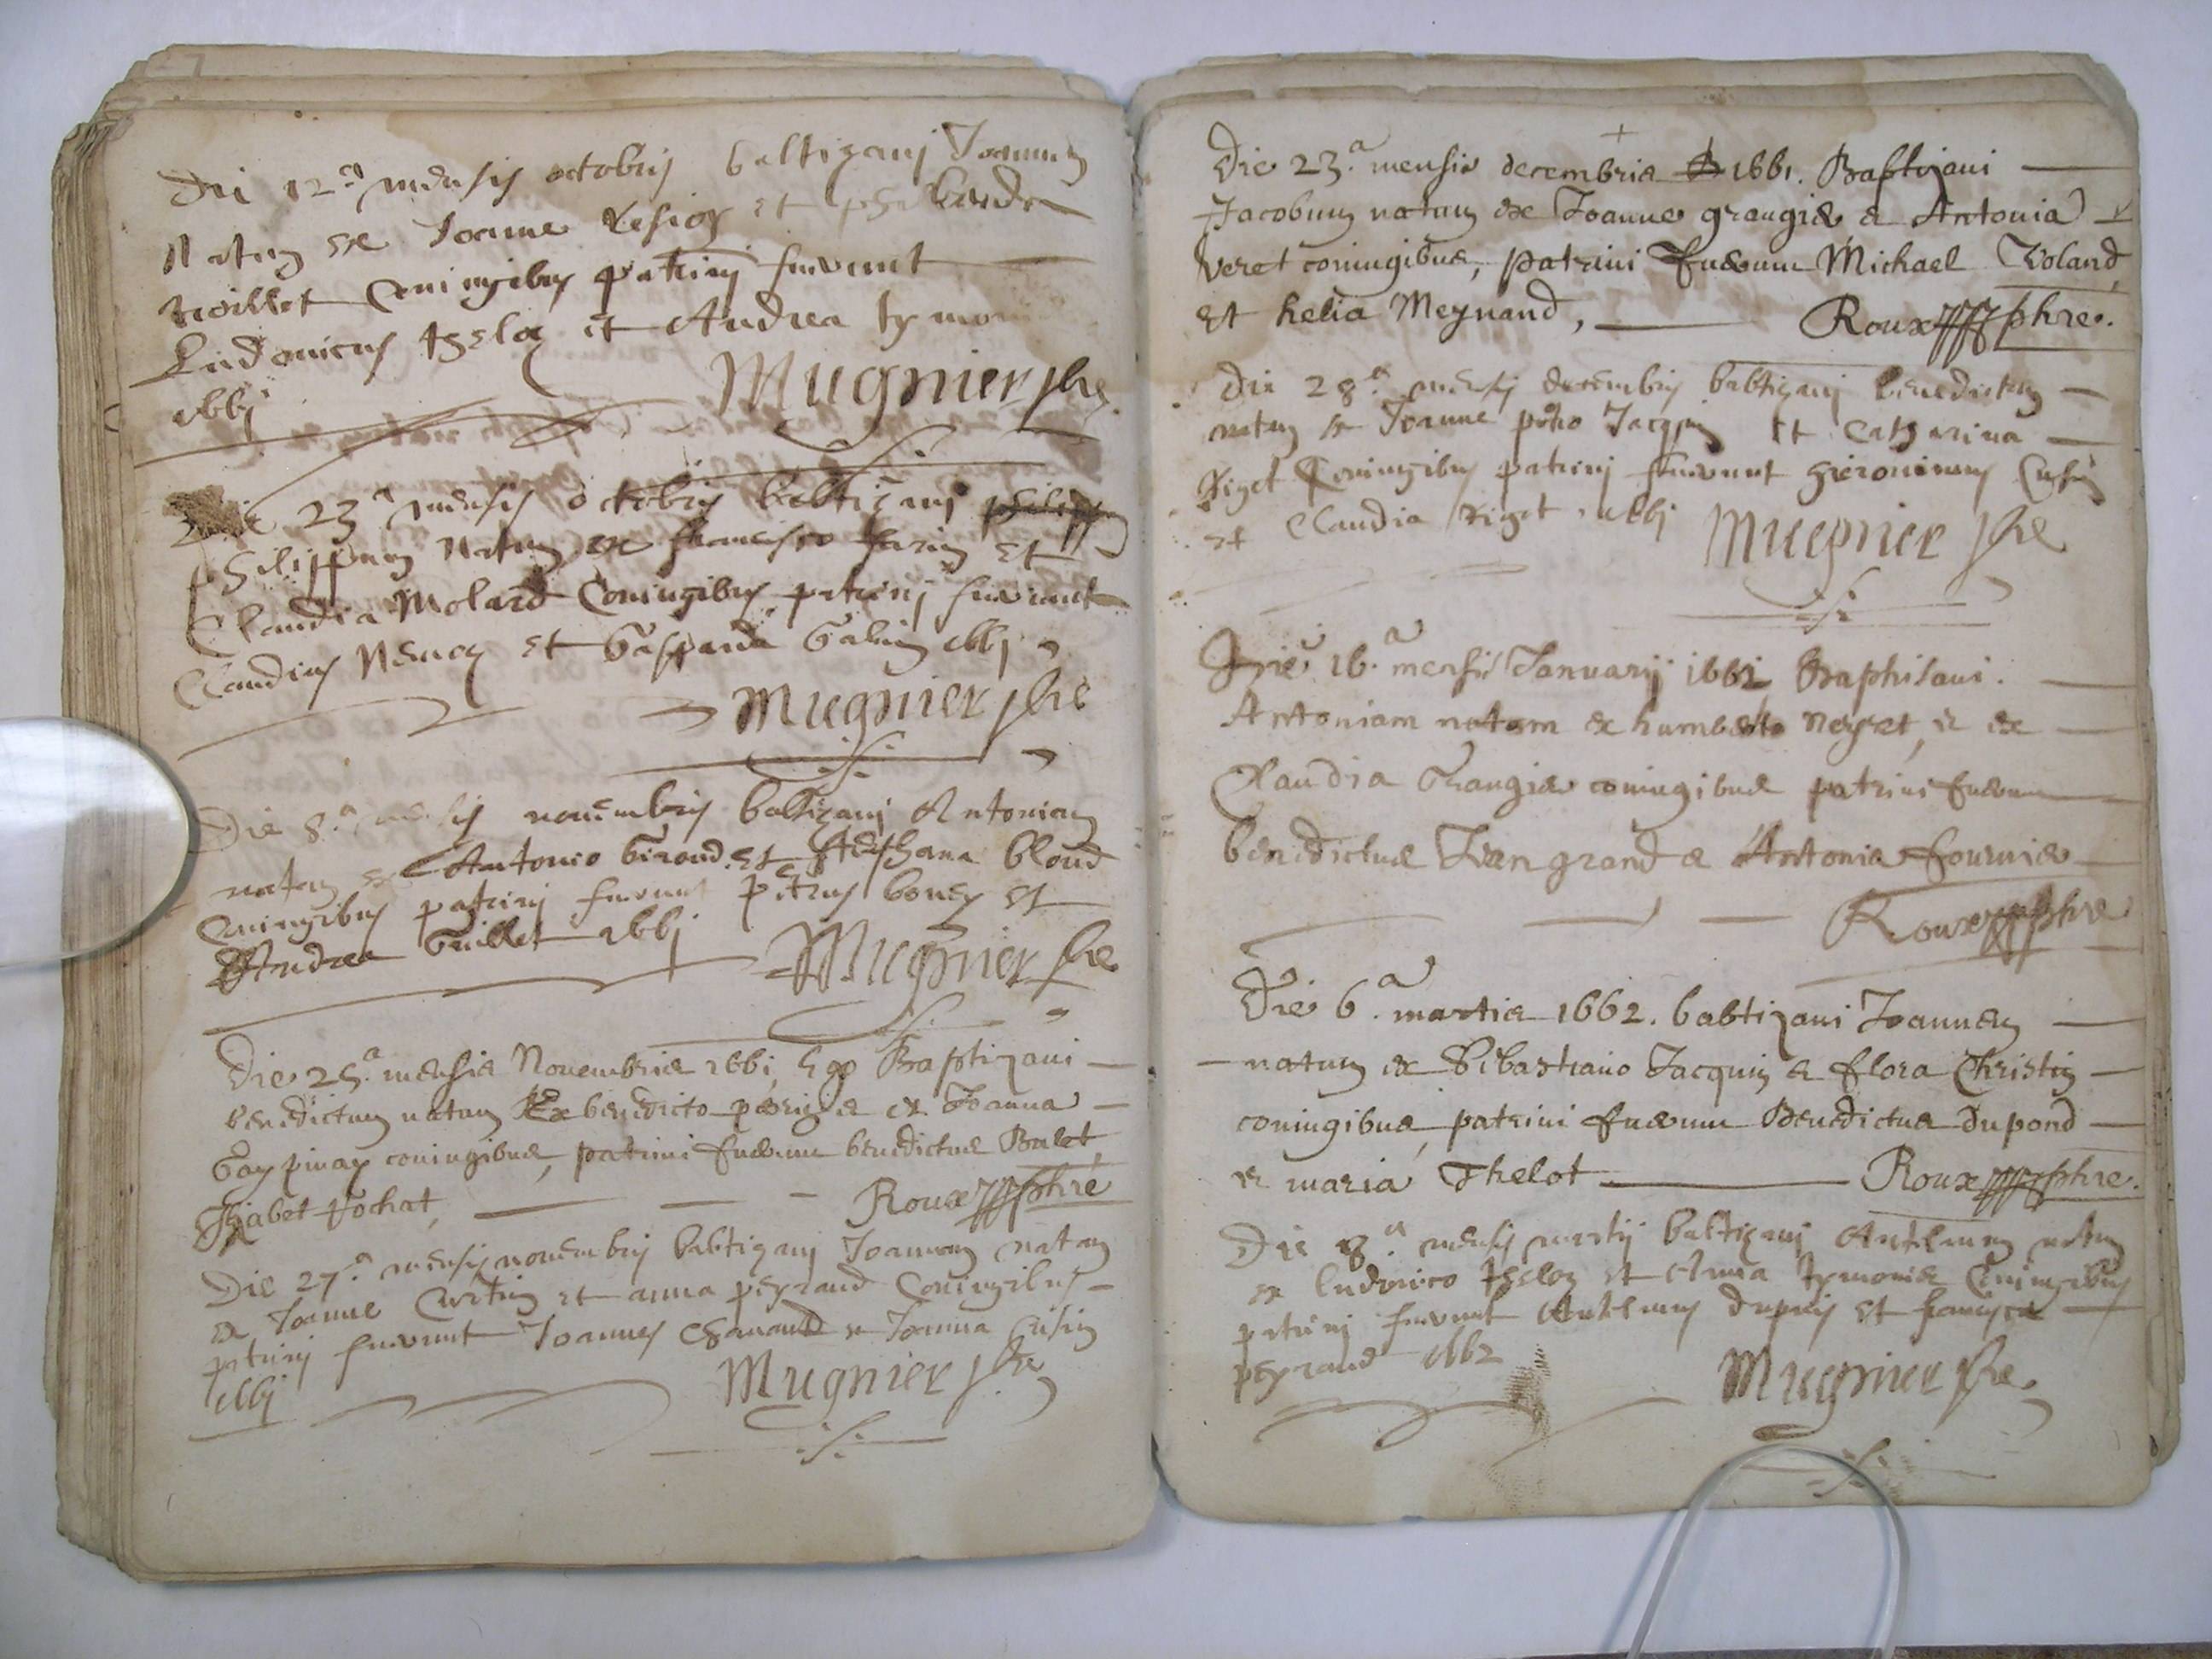 Die 12.a mensis octobris baltizavi Joannem
Natum ex Joanne et
Coniugibus patrini fuerunt
Ludovicus et Andrea tymon
1661
Mugnier pbre
Die 23.a mensis octobris baltizavi
philippum Natum ex francisco et
Claudia Molard Coniugibus patrini fuerunt
Claudius et Gasparda 1661
Mugnier pbre
Die 8.a novembris baltizavi Antonium
natum ex Antonio Giroud et Stephana bloud
Coniugibus patrini fuerunt petrus et
Andrea Guillet 1661
Mugnier pbre
Die 25.a mensis Novembris 1661, Ego Baptizavi
benedictum natum Ex benedicto et Joanna
coniugibus, patrini fuerunt benedictus Balet
Rouxpbre
Die 27.a mensis novembris babtizavi Joannem natum
ex Joanne Curtin et anna peyraud Coniugibus
patrini fuerunt Joannes et Joanna Cusin
1661
Mugnier pbre
Die 23.a mensis decembris 1661. Baptizavi
Jacobum natum ex Joanne grangie & Antonia
Veret coniugibus, patrini fuerunt Michael
et helia Meynand, Rouxpbre.
Die 28.a mensis decembris babtizavi benedictum
natum ex Joanne petro Jacquin et Catharina
Coniugibus patrini fuerunt hieronimus Cusin
et Claudia 1661 Mugnier pbre
Die 16.a mensis Januarij 1662 Baphisavi.
Antoniam natam ex humberto Neyret, & ex
Claudia Grangie coniugibus patrini fuerunt
benedictus & Antonia fournie
Rouxpbre
Die 6.a martis 1662. babtizavi Joannem
natum ex Sebastiano Jacquin & flora Christin
coniugibus, patrini fuerunt Benedictus dupond
& maria Thelot Rouxpbre.
Die 8.a mensis martij baltizavi Antelmum natum
ex ludovico et Anna tymonie Coniugibus
patrini fuerunt Antelmus dupuis et francisca
peyraud 1662 Mugnier pbre